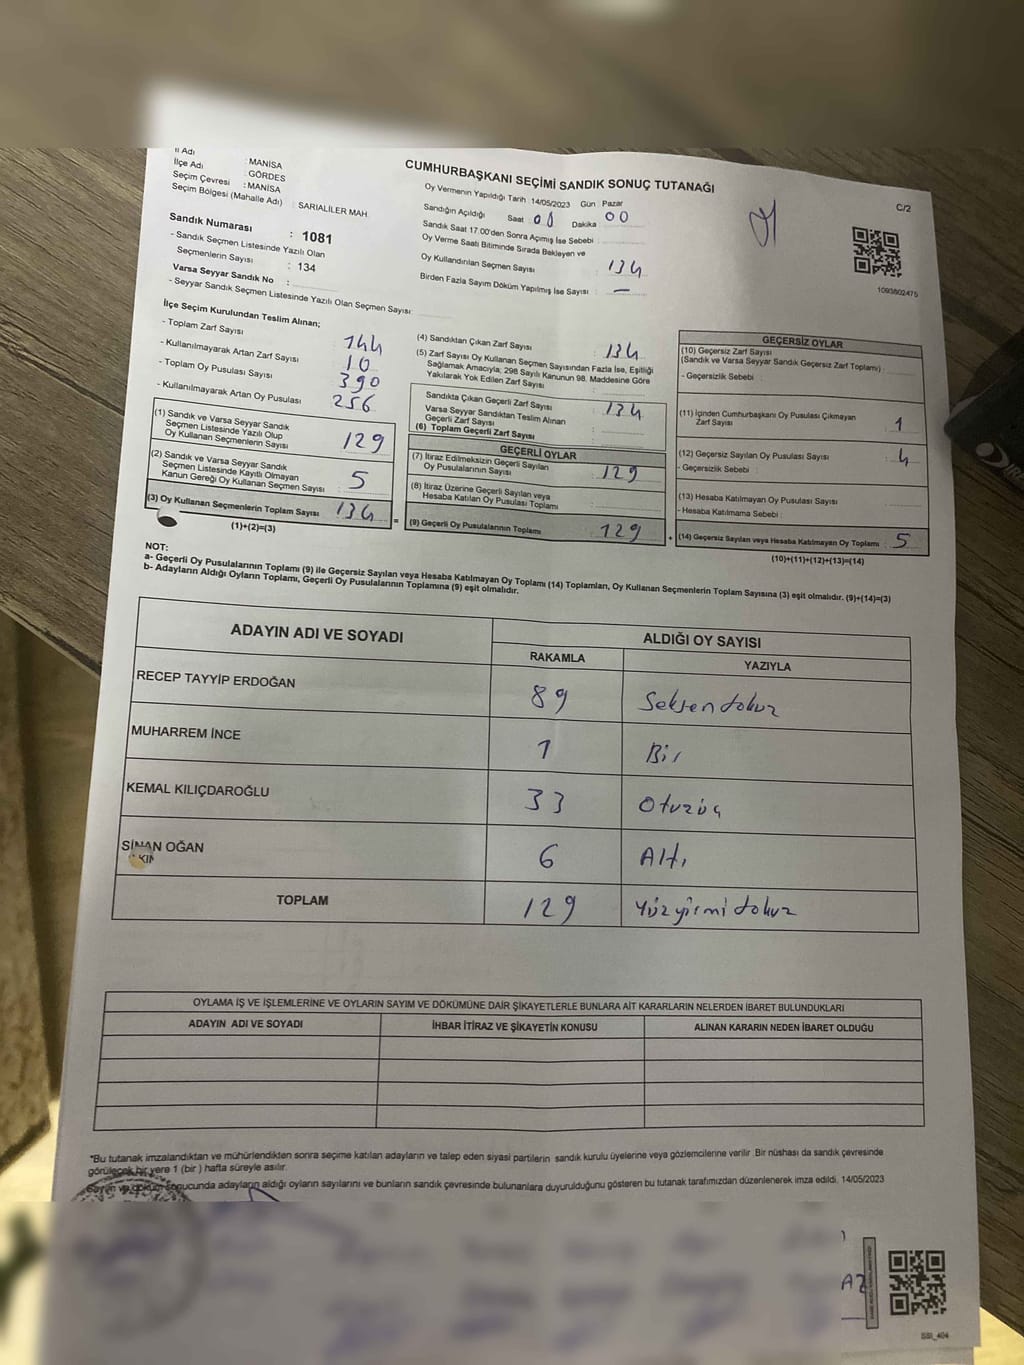 İl Adı
İlçe Adı : MANİSA
Seçim Çevresi : GÖRDES
Seçim Bölgesi (Mahalle Adı) : MANİSA
: SARIALİLER MAH
Sandık Numarası : 1081
- Sandık Seçmen Listesinde Yazılı Olan
Seçmenlerin Sayısı : 134
Varsa Seyyar Sandık No :
- Seyyar Sandık Seçmen Listesinde Yazılı Olan Seçmen Sayısı:
CUMHURBAŞKANI SEÇİMİ SANDIK SONUÇ TUTANAĞI
Oy Vermenin Yapıldığı Tarih : 14/05/2023 Gün : Pazar
Sandığın Açıldığı Saat : 08 Dakika : 00
Sandık Saat 17.00'den Sonra Açımış İse Sebebi :
Oy Verme Saati Bitiminde Sırada Bekleyen ve
Oy Kullandırılan Seçmen Sayısı : 134
Birden Fazla Sayım Döküm Yapılmış İse Sayısı : —
C/2
1093802475
İlçe Seçim Kurulundan Teslim Alınan;
- Toplam Zarf Sayısı : 144
- Kullanılmayarak Artan Zarf Sayısı : 10
- Toplam Oy Pusulası Sayısı : 390
- Kullanılmayarak Artan Oy Pusulası : 256
(1) Sandık ve Varsa Seyyar Sandık
Seçmen Listesinde Yazılı Olup
Oy Kullanan Seçmenlerin Sayısı : 129
(2) Sandık ve Varsa Seyyar Sandık
Seçmen Listesinde Kayıtlı Olmayan
Kanun Gereği Oy Kullanan Seçmen Sayısı : 5
(3) Oy Kullanan Seçmenlerin Toplam Sayısı : 134
(1)+(2)=(3)
(4) Sandıktan Çıkan Zarf Sayısı : 134
(5) Zarf Sayısı Oy Kullanan Seçmen Sayısından Fazla İse, Eşitliği
Sağlamak Amacıyla; 298 Sayılı Kanunun 98. Maddesine Göre
Yakılarak Yok Edilen Zarf Sayısı :
Sandıkta Çıkan Geçerli Zarf Sayısı : 134
Varsa Seyyar Sandıktan Teslim Alınan
Geçerli Zarf Sayısı :
(6) Toplam Geçerli Zarf Sayısı :
GEÇERLİ OYLAR
(7) İtiraz Edilmeksizin Geçerli Sayılan
Oy Pusulalarının Sayısı : 129
(8) İtiraz Üzerine Geçerli Sayılan veya
Hesaba Katılan Oy Pusulası Toplamı :
= (9) Geçerli Oy Pusulalarının Toplamı : 129
GEÇERSİZ OYLAR
(10) Geçersiz Zarf Sayısı
(Sandık ve Varsa Seyyar Sandık Geçersiz Zarf Toplamı) :
- Geçersizlik Sebebi :
(11) İçinden Cumhurbaşkanı Oy Pusulası Çıkmayan
Zarf Sayısı : 1
(12) Geçersiz Sayılan Oy Pusulası Sayısı : 4
- Geçersizlik Sebebi :
(13) Hesaba Katılmayan Oy Pusulası Sayısı :
- Hesaba Katılmama Sebebi :
+ (14) Geçersiz Sayılan veya Hesaba Katılmayan Oy Toplamı : 5
(10)+(11)+(12)+(13)=(14)
NOT:
a- Geçerli Oy Pusulalarının Toplamı (9) ile Geçersiz Sayılan veya Hesaba Katılmayan Oy Toplamı (14) Toplamları, Oy Kullanan Seçmenlerin Toplam Sayısına (3) eşit olmalıdır. (9)+(14)=(3)
b- Adayların Aldığı Oyların Toplamı, Geçerli Oy Pusulalarının Toplamına (9) eşit olmalıdır.
ADAYIN ADI VE SOYADI ALDIĞI OY SAYISI
RAKAMLA YAZIYLA
RECEP TAYYİP ERDOĞAN 89 Seksendokuz
MUHARREM İNCE 1 Bir
KEMAL KILIÇDAROĞLU 33 Otuzüç
SİNAN OĞAN 6 Altı
TOPLAM 129 Yüzyirmidokuz
OYLAMA İŞ VE İŞLEMLERİNE VE OYLARIN SAYIM VE DÖKÜMÜNE DAİR ŞİKAYETLERLE BUNLARA AİT KARARLARIN NELERDEN İBARET BULUNDUKLARI
ADAYIN ADI VE SOYADI İHBAR İTİRAZ VE ŞİKAYETİN KONUSU ALINAN KARARIN NEDEN İBARET OLDUĞU
*Bu tutanak imzalandıktan ve mühürlendikten sonra seçime katılan adayların ve talep eden siyasi partilerin sandık kurulu üyelerine veya gözlemcilerine verilir. Bir nüshası da sandık çevresinde
görülecek bir yere 1 (bir) hafta süreyle asılır.
Sayım ve döküm sonucunda adayların aldığı oyların sayılarını ve bunların sandık çevresinde bulunanlara duyurulduğunu gösteren bu tutanak tarafımızdan düzenlenerek imza edildi. 14/05/2023
SSI_404